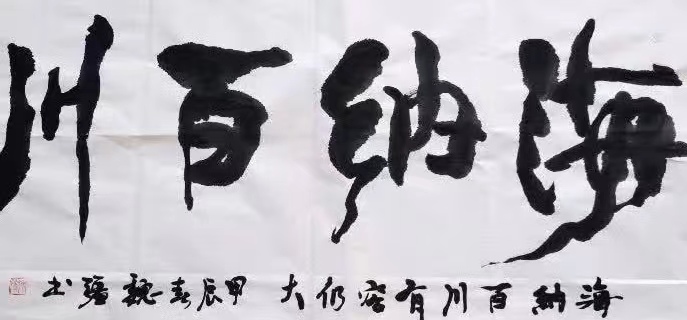 海纳百川
海纳百川有容仍大 甲辰春魏疆书